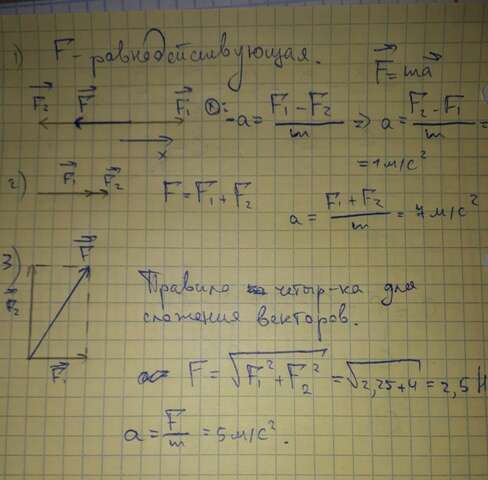 1) F - равнодействующая.
F⃗ = ma⃗
F⃗₂ F⃗ F⃗₁ x: -a = (F₁ - F₂)/m ⇒ a = (F₂ - F₁)/m =
x
= 1 м/с²
2) F⃗₁ F⃗₂ F = F₁ + F₂
a = (F₁ + F₂)/m = 7 м/с²
3) F⃗
F⃗₂ Правило четыр-ка для
сложения векторов.
F⃗₁ F = √(F₁² + F₂²) = √(2,25 + 4) = 2,5 Н
a = F/m = 5 м/с².